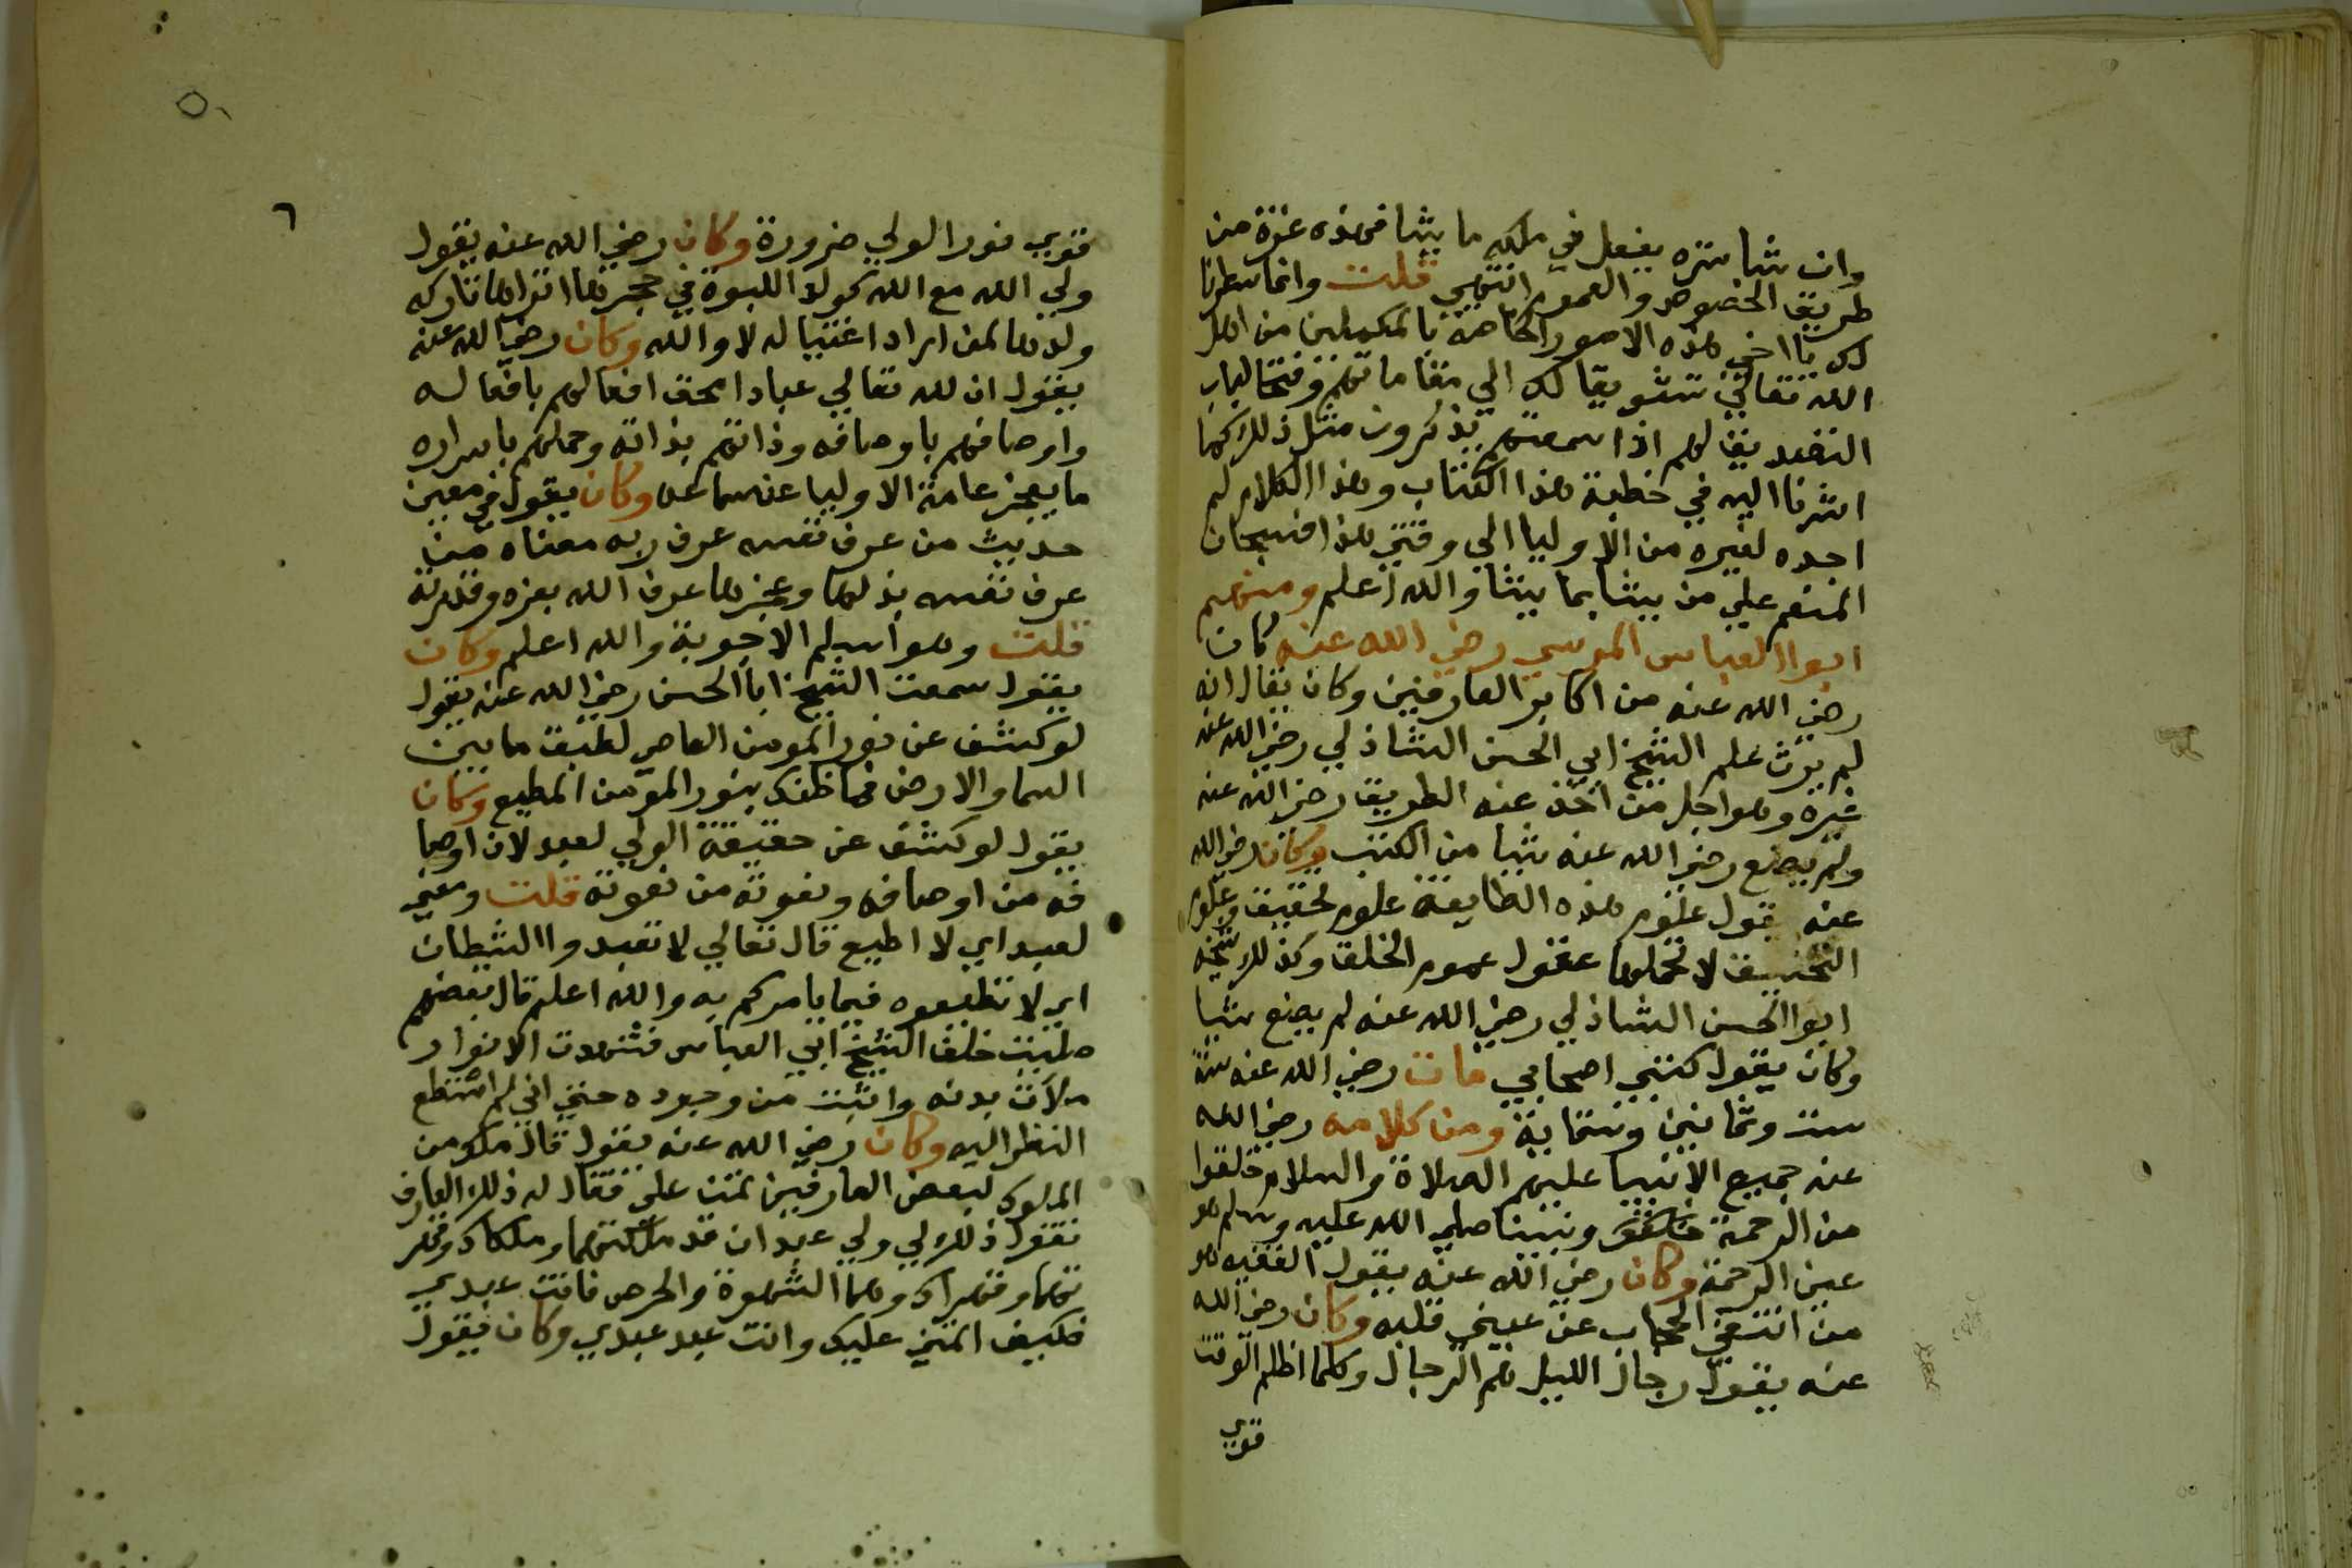 وان شا ستره يفعل في ملكه ما يشا فهذه غزة من
طريق الخصوص والعموم انتهي قلت وانما سطرنا
لك يا اخي هذه الامور الخاصة بالمكملين من اهل
الله تعالي تشويقا لك الي مقاماتهم وفتحا لباب
التصديق لهم اذا سمعتهم يذكرون مثل ذلك كما
اشرنا اليه في خطبة هذا الكتاب وهذا الكلام لم
اجده لغيره من الاوليا الي وقتي هذا فسبحان
المنعم علي من يشا بما يشا والله اعلم ومنهم
ابوا العباس المرسي رضي الله عنه كان
رضي الله عنه من اكابر العارفين وكان يقال انه
لم يرث علم الشيخ ابي الحسن الشاذلي رضي الله عنه
غيره وهو اجل من اخذ عنه الطريق رضي الله عنه
ولم يصنع رضي الله عنه شيا من الكتب وكان رضي الله
عنه يقول علوم هذه الطايفة علوم تحقيق وعلوم
التحقيق لا تحملها عقول عموم الخلق وكذلك شيخه
ابوا الحسن الشاذلي رضي الله عنه لم يصنع شيا
وكان يقول كتبي اصحابي مات رضي الله عنه سنة
ست وثمانين وستماية ومن كلامه رضي الله
عنه جميع الانبيا عليهم الصلاة والسلام خلقوا
من الرحمة ونبينا صلي الله عليه وسلم هو
عين الرحمة وكان رضي الله عنه يقول الفقيه هو
من انتفي الحجاب عن عيني قلبه وكان رضي الله
عنه يقول رجال الليل هم الرجال وكلما اظلم الوقت
قوي
٦
قوي نور الولي ضرورة وكان رضي الله عنه يقول
ولي الله مع الله كولد اللبوة في حجرها اتراها تاركه
ولدها لمن اراد اغتياله لا والله وكان رضي الله عنه
يقول ان لله تعالي عبادا محق افعالهم بافعاله
واوصافهم باوصافه وذاتهم بذاته وحملهم باسراره
ما يعجز عامة الاوليا عن سماعه وكان يقول في معني
حديث من عرف نفسه عرف ربه معناه من
عرف نفسه بذلها وعجزها عرف الله بعزه وقدرته
قلت وهو اسلم الاجوبة والله اعلم وكان
يقول سمعت الشيخ ابا الحسن رضي الله عنه يقول
لو كشف عن نور المومن العاصي لطبق ما بين
السما والارض فما ظنك بنور المومن المطيع وكان
يقول لو كشف عن حقيقة الولي لعبد لان اوصا
فه من اوصافه ونعوته من نعوته قلت ومعني
لعبد اي لا اطيع قال تعالي لا تعبدوا الشيطان
اي لا تطيعوه فيما يامركم به والله اعلم قال بعضهم
صليت خلف الشيخ ابي العباس فشهدت الانوار
ملات بدنه وانبثت من وجوده حتي اني لم استطع
النظر اليه وكان رضي الله عنه يقول قال ملك من
الملوك لبعض العارفين تمن علي فقال له ذلك العارف
تقول ذلك لي ولي عبدان قد ملكتهما وملكاك وقهر
تهما وقهراك وهما الشهوة والحرص فانت عبد عبدي
فكيف اتمني عليك وانت عبد عبدي وكان فيقول